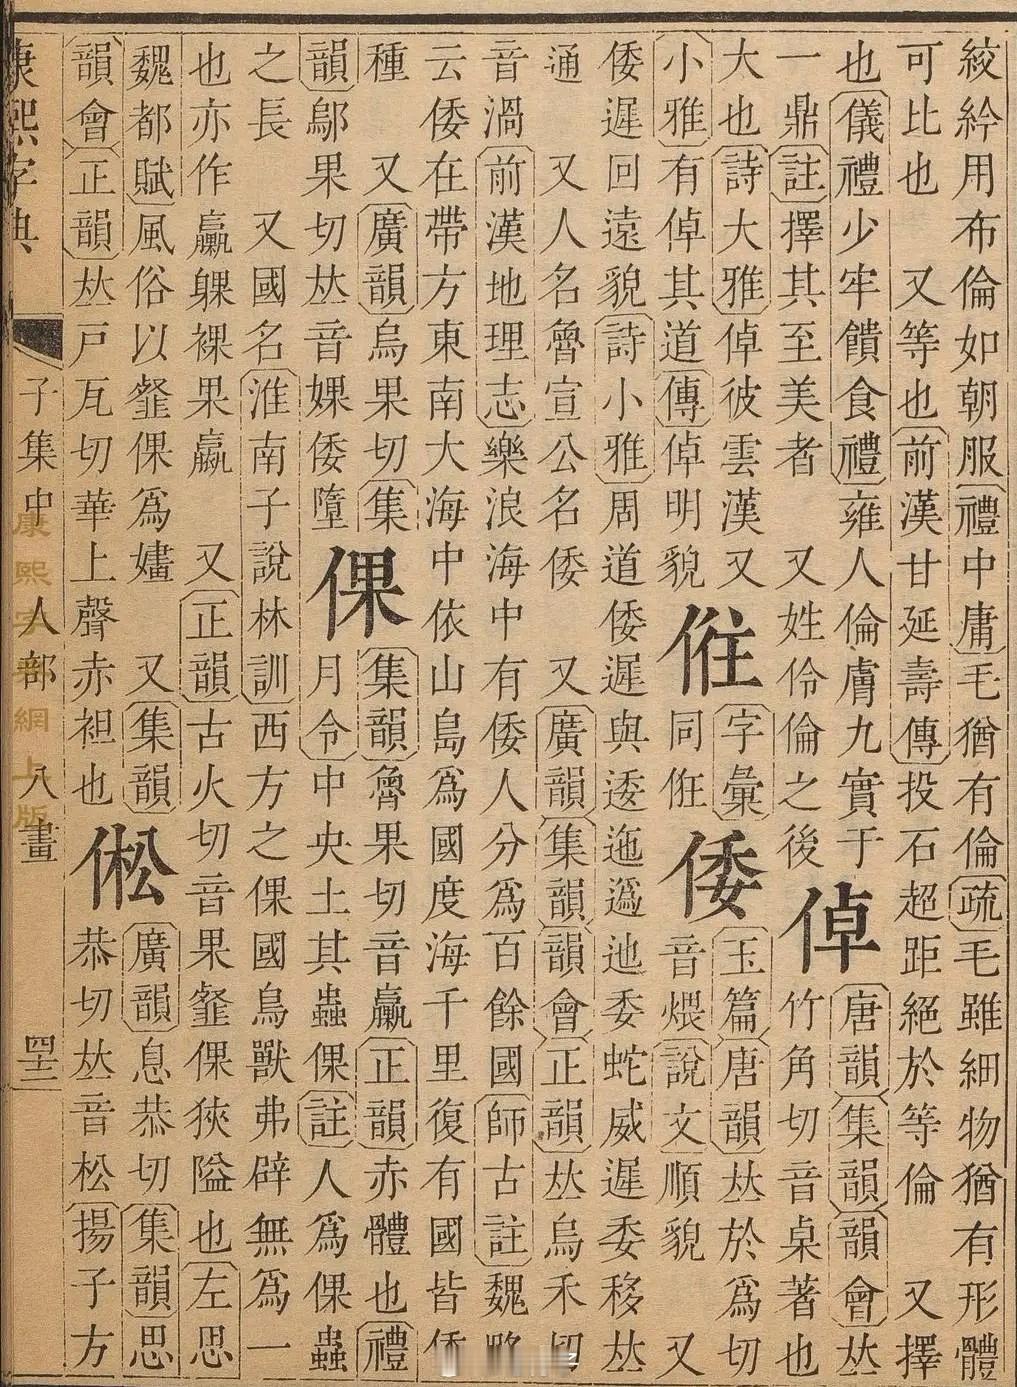 絞紟用布倫如朝服禮中庸毛猶有倫疏毛雖細物猶有形體
可比也 又等也前漢甘延壽傳投石超距絕於等倫 又擇
也儀禮少牢饋食禮雍人倫膚九實于
一鼎註擇其至美者 又姓伶倫之後
倬
唐韻集韻韻會𠀤
竹角切音桌著也
大也詩大雅倬彼雲漢又
小雅有倬其道傳倬明貌
字彙
同
倭
玉篇唐韻𠀤於爲切
音煨說文順貌 又
倭遲回遠貌詩小雅周道倭遲與逶迤迆委蛇威遲委移𠀤
通 又人名魯宣公名倭 又廣韻集韻韻會正韻𠀤烏禾切
音渦前漢地理志樂浪海中有倭人分爲百餘國師古註魏略
云倭在帶方東南大海中依山島爲國度海千里復有國皆倭
種 又廣韻烏果切集
韻鄔果切𠀤音婐倭墮
倮
集韻魯果切音臝正韻赤體也禮
月令中央土其蟲倮註人爲倮蟲
之長 又國名淮南子說林訓西方之倮國鳥獸弗辟無爲一
也亦作臝躶裸果蠃 又正韻古火切音果韰倮狹隘也左思
魏都賦風俗以韰倮爲嫿 又集韻
韻會正韻𠀤戶瓦切華上聲赤袒也
倯
廣韻息恭切集韻思
恭切𠀤音松揚子方
康熙字典 子集中 人部 八畫 四十二
康熙字典網上版